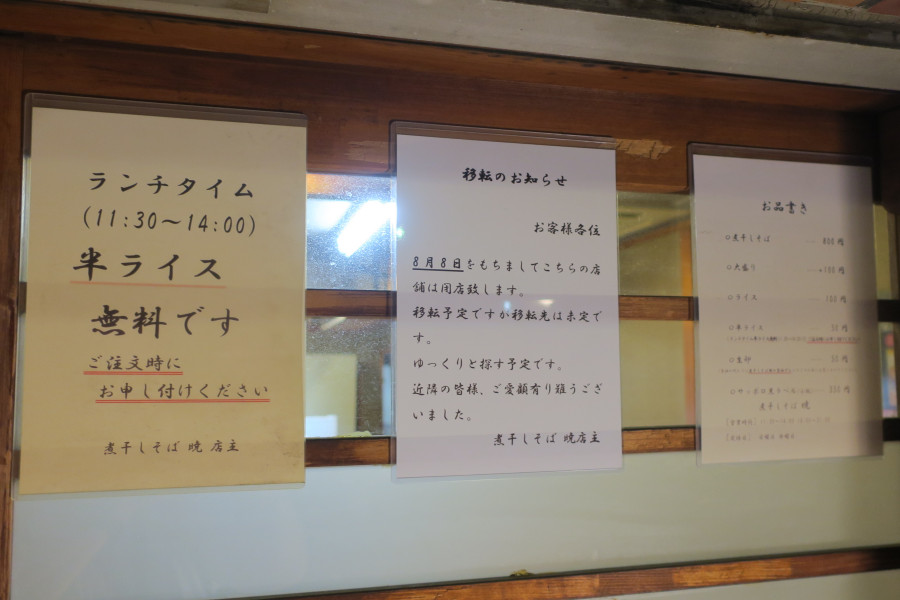 ランチタイム
(11:30〜14:00)
半ライス
無料です
ご注文時に
お申し付けください
煮干しそば 暁 店主
移転のお知らせ
お客様各位
8月8日をもちましてこちらの店
舗は閉店致します。
移転予定ですが移転先は未定で
す。
ゆっくりと探す予定です。
近隣の皆様、ご愛顧有り難うござ
いました。
煮干しそば 暁 店主
お品書き
○煮干しそば 800円
○大盛り +100円
○ライス 100円
○半ライス 50円
煮干しそば 暁